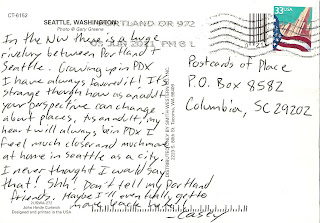 CT-6162
SEATTLE, WASHINGTON
Photo © Gary Greene
PORTLAND OR 972
03 JUN 2011 PM 8 L
33 USA
In the NW there is a huge
rivalry between Portland &
Seattle. Growing up in PDX
I have always favored it! It's
strange though how as an adult
your perspective can change
about places, as an adult, my
heart will always be in PDX I
feel much closer and much more
at home in seattle as a city.
I never thought I would say
that! Shh! Don't tell my Portland
friends. Maybe I'll eventually get to
move back there!
- Casey
Postcards of Place
P.O. Box 8582
Columbia, SC 29202
John Hinde Curteich
Designed and printed in the USA